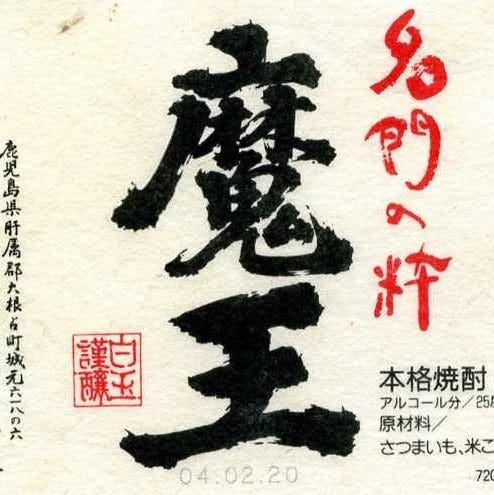 名門の粋
魔王
鹿児島県肝属郡大根占町城元六一八の六
白玉
謹醸
本格焼酎
アルコール分/25
原材料/
さつまいも、米こ
720
04.02.20